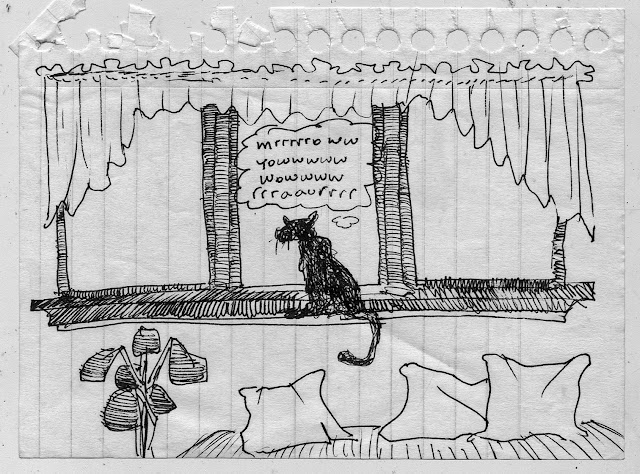 mrrrrro ww
yowwwww
wowwww
rrraaurrrr